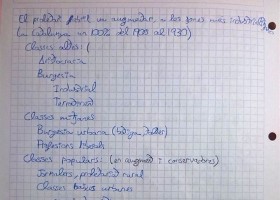 El proletariat van augmentar, a les zones més industrials
(a Catalunya un 100% del 1900 al 1930)
Classes altes: (
Aristocràcia
Burgesia
Industrial
Terratinent
Classes mitjanes
Burgesia urbana (botiga, taller)
Professions liberals
Classes populars: (en augment i conservadores)
Jornalers, proletariat rural
Classes baixes urbanes